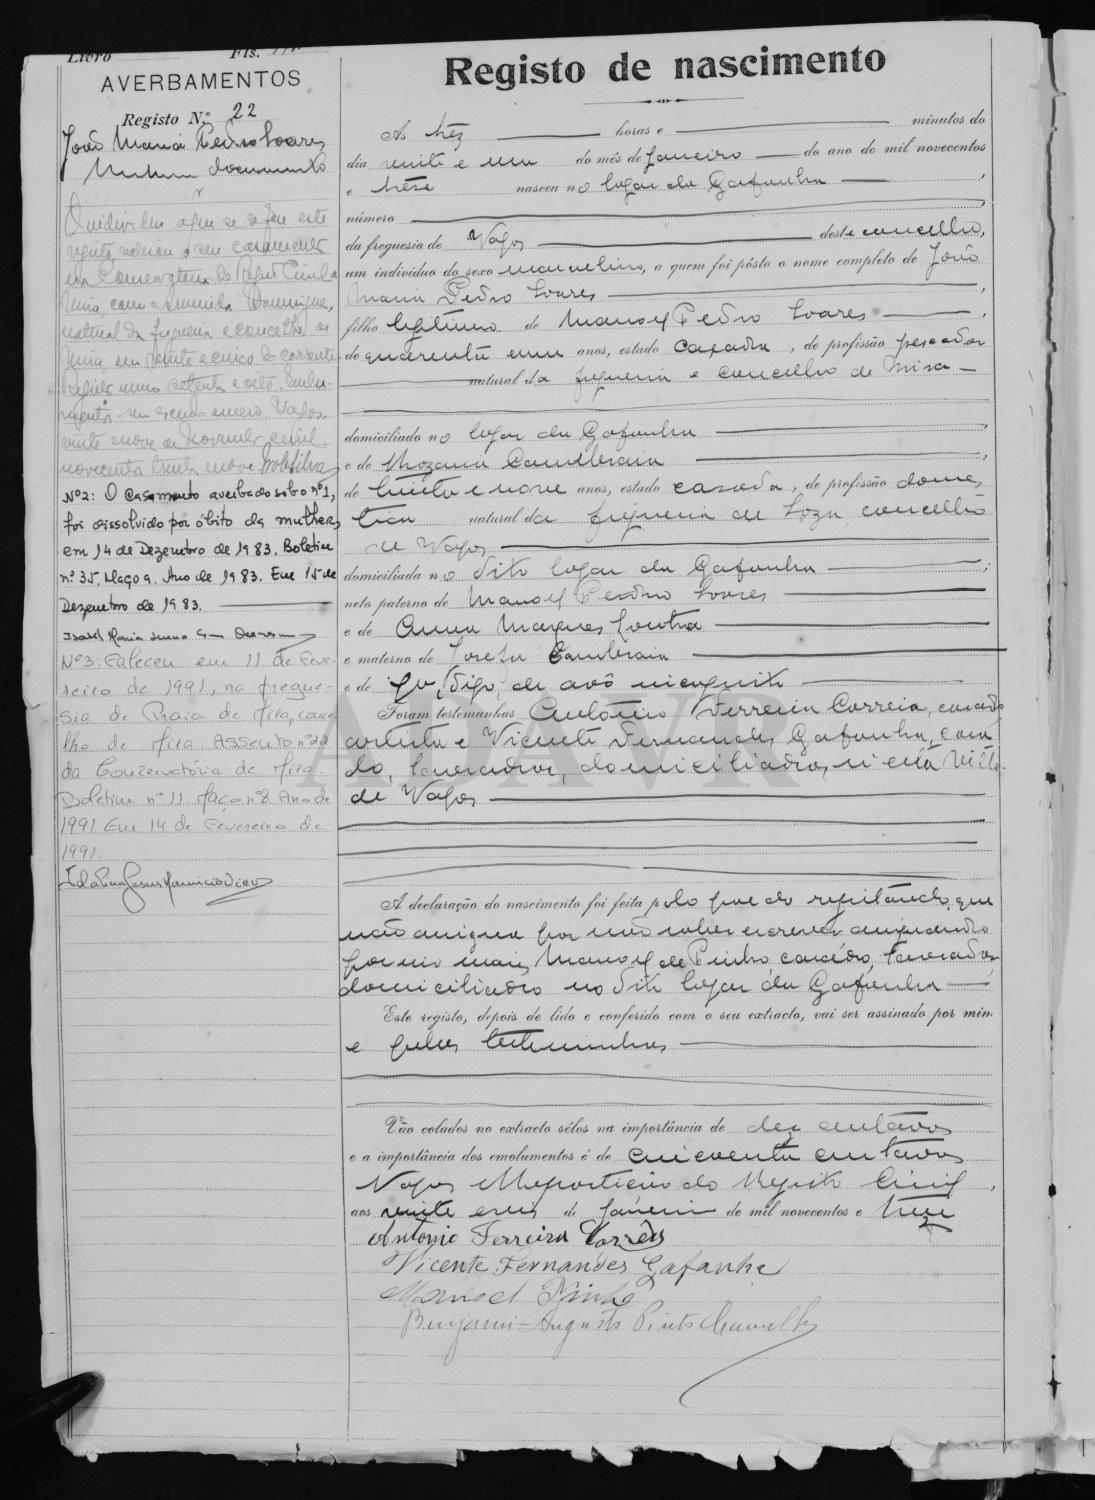 Livro Fls.
AVERBAMENTOS
Registo N.º 22
João Maria Pedro Soares
Nenhum documento
O individuo a que se refere este
registo, contraiu o seu casamento
na Conservatoria do Registo Civil de
Mira, com Domingues,
natural da freguesia e concelho de
Mira, em vinte e cinco do corrente
Registo numero setenta e oito. Emolu-
mentos - um escudo e meio. Vagos
vinte e nove de Novembro de mil
novecentos trinta e nove
Nº2: O Casamento averbado sob o nº1,
foi dissolvido por óbito da mulher,
em 14 de Dezembro de 1983. Boletim
nº 35. Maço 9. Ano de 1983. Em 15 de
Dezembro de 1983.
Isabel Maria
Nº3: Faleceu em 11 de Feve-
reiro de 1991, na fregue-
sia de Praia de Mira, conce-
lho de Mira. Assento nº 22
da Conservatória de Mira.
Boletim nº 11 Maço nº 2 Ano de
1991 Em 14 de Fevereiro de
1991.
Registo de nascimento
Ás três horas e minutos do
dia vinte e um do mês de Janeiro do ano de mil novecentos
e trese nasceu no logar da Gafanha,
número
da freguesia de Vagos deste concelho,
um individuo do sexo masculino, a quem foi pôsto o nome completo de João
Maria Pedro Soares,
filho legitimo de Manoel Pedro Soares,
de quarenta e um anos, estado casado, de profissão pescador
natural da freguesia e concelho de Mira
domiciliado no logar da Gafanha
e de Rozaria Cambraia,
de trinta e nove anos, estado casada, de profissão domes
tica natural da freguesia de Soza, concelho
de Vagos
domiciliada no dito logar da Gafanha;
neto paterno de Manoel Pedro Soares
e de Anna Marques
e materno de Josefa Cambraia
e de que, digo, de avô incognito
Foram testemunhas António Ferreira Correia, casado
artista e Vicente Fernandes Gafanha, casa
do, lavrador, domiciliados n'esta Villa
de Vagos
A declaração do nascimento foi feita pelo pae do registando, que
não assigna por não saber escrever assignando
por elle Manoel de Pinho, casado, lavrador,
domiciliado no dito logar da Gafanha
Este registo, depois de lido e conferido com o seu extracto, vai ser assinado por mim
e pelas testemunhas
Vão colados no extracto sêlos na importância de dez centavos
e a importância dos emolumentos é de cincoenta centavos
Vagos Repartição do Registo Civil,
aos vinte e de Janeiro de mil novecentos e treze
António Ferreira Corrêa
Vicente Fernandes Gafanha
Manoel Pinho
Benjamim Augusto Pinto